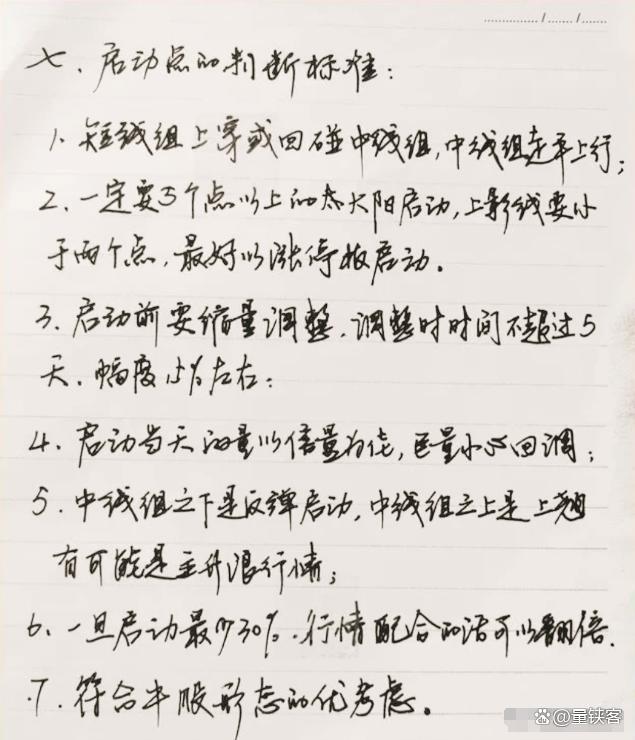 七、启动点的判断标准：
1、短线组上穿或回碰中线组，中线组走平上行；
2、一定要5个点以上的大阳启动，上影线要小
于两个点，最好以涨停板启动。
3、启动前要缩量调整，调整时时间不超过5
天，幅度15%左右；
4、启动当天的量以倍量为佳，巨量小心回调；
5、中线组之下是反弹启动，中线组之上是上翘
有可能是主升浪行情；
6、一旦启动最少30%，行情配合的话可以翻倍.
7、符合牛股形态的优考虑。
百度 @量铁客